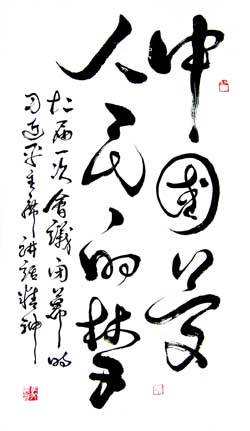 中国梦
人民的梦
十二届一次會議闭幕的
习近平主席讲话精神